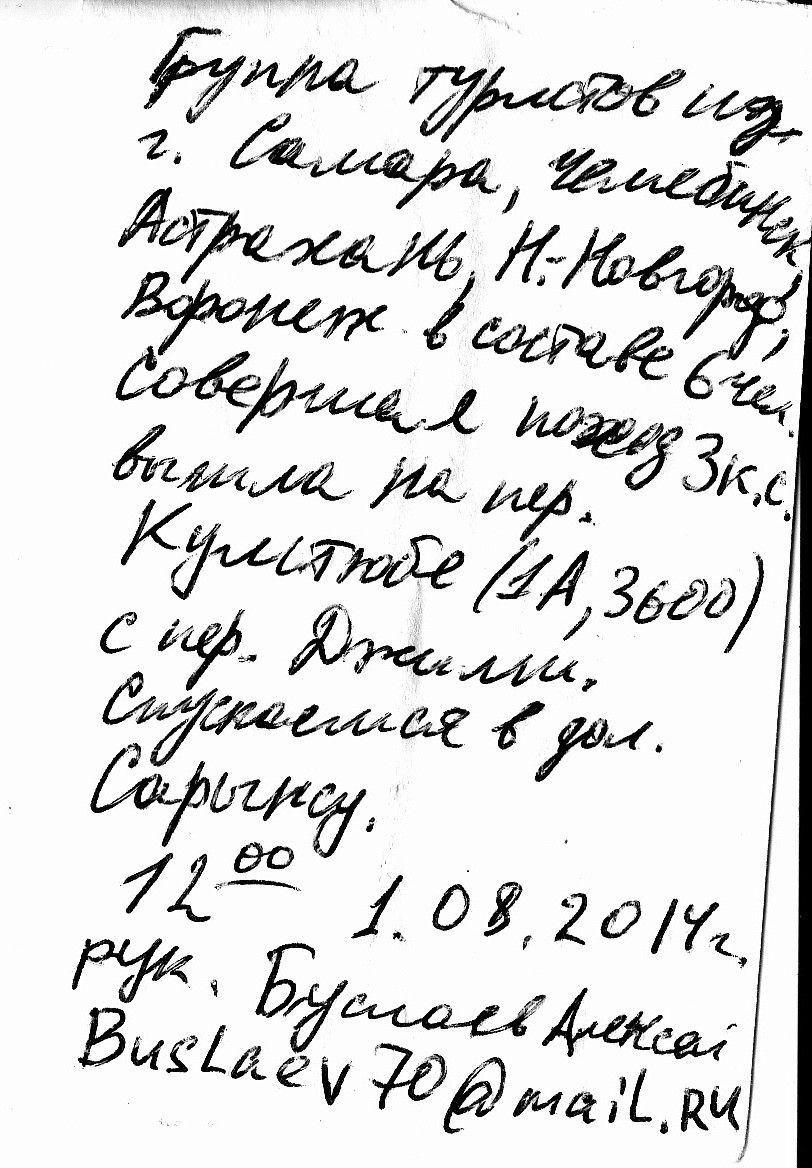 Группа туристов из
г. Самара, Челябинск,
Астрахань, Н.-Новгород,
Воронеж в составе 6 чел.
совершая поход 3 к.с.
вышла на пер.
Кулистюбе (1А, 3600)
с пер. Джилли.
Спускаемся в дол.
Сарынсу.
12 00 1.08.2014г.
рук. Буслаев Алексей
BusLaev70@maiL.RU